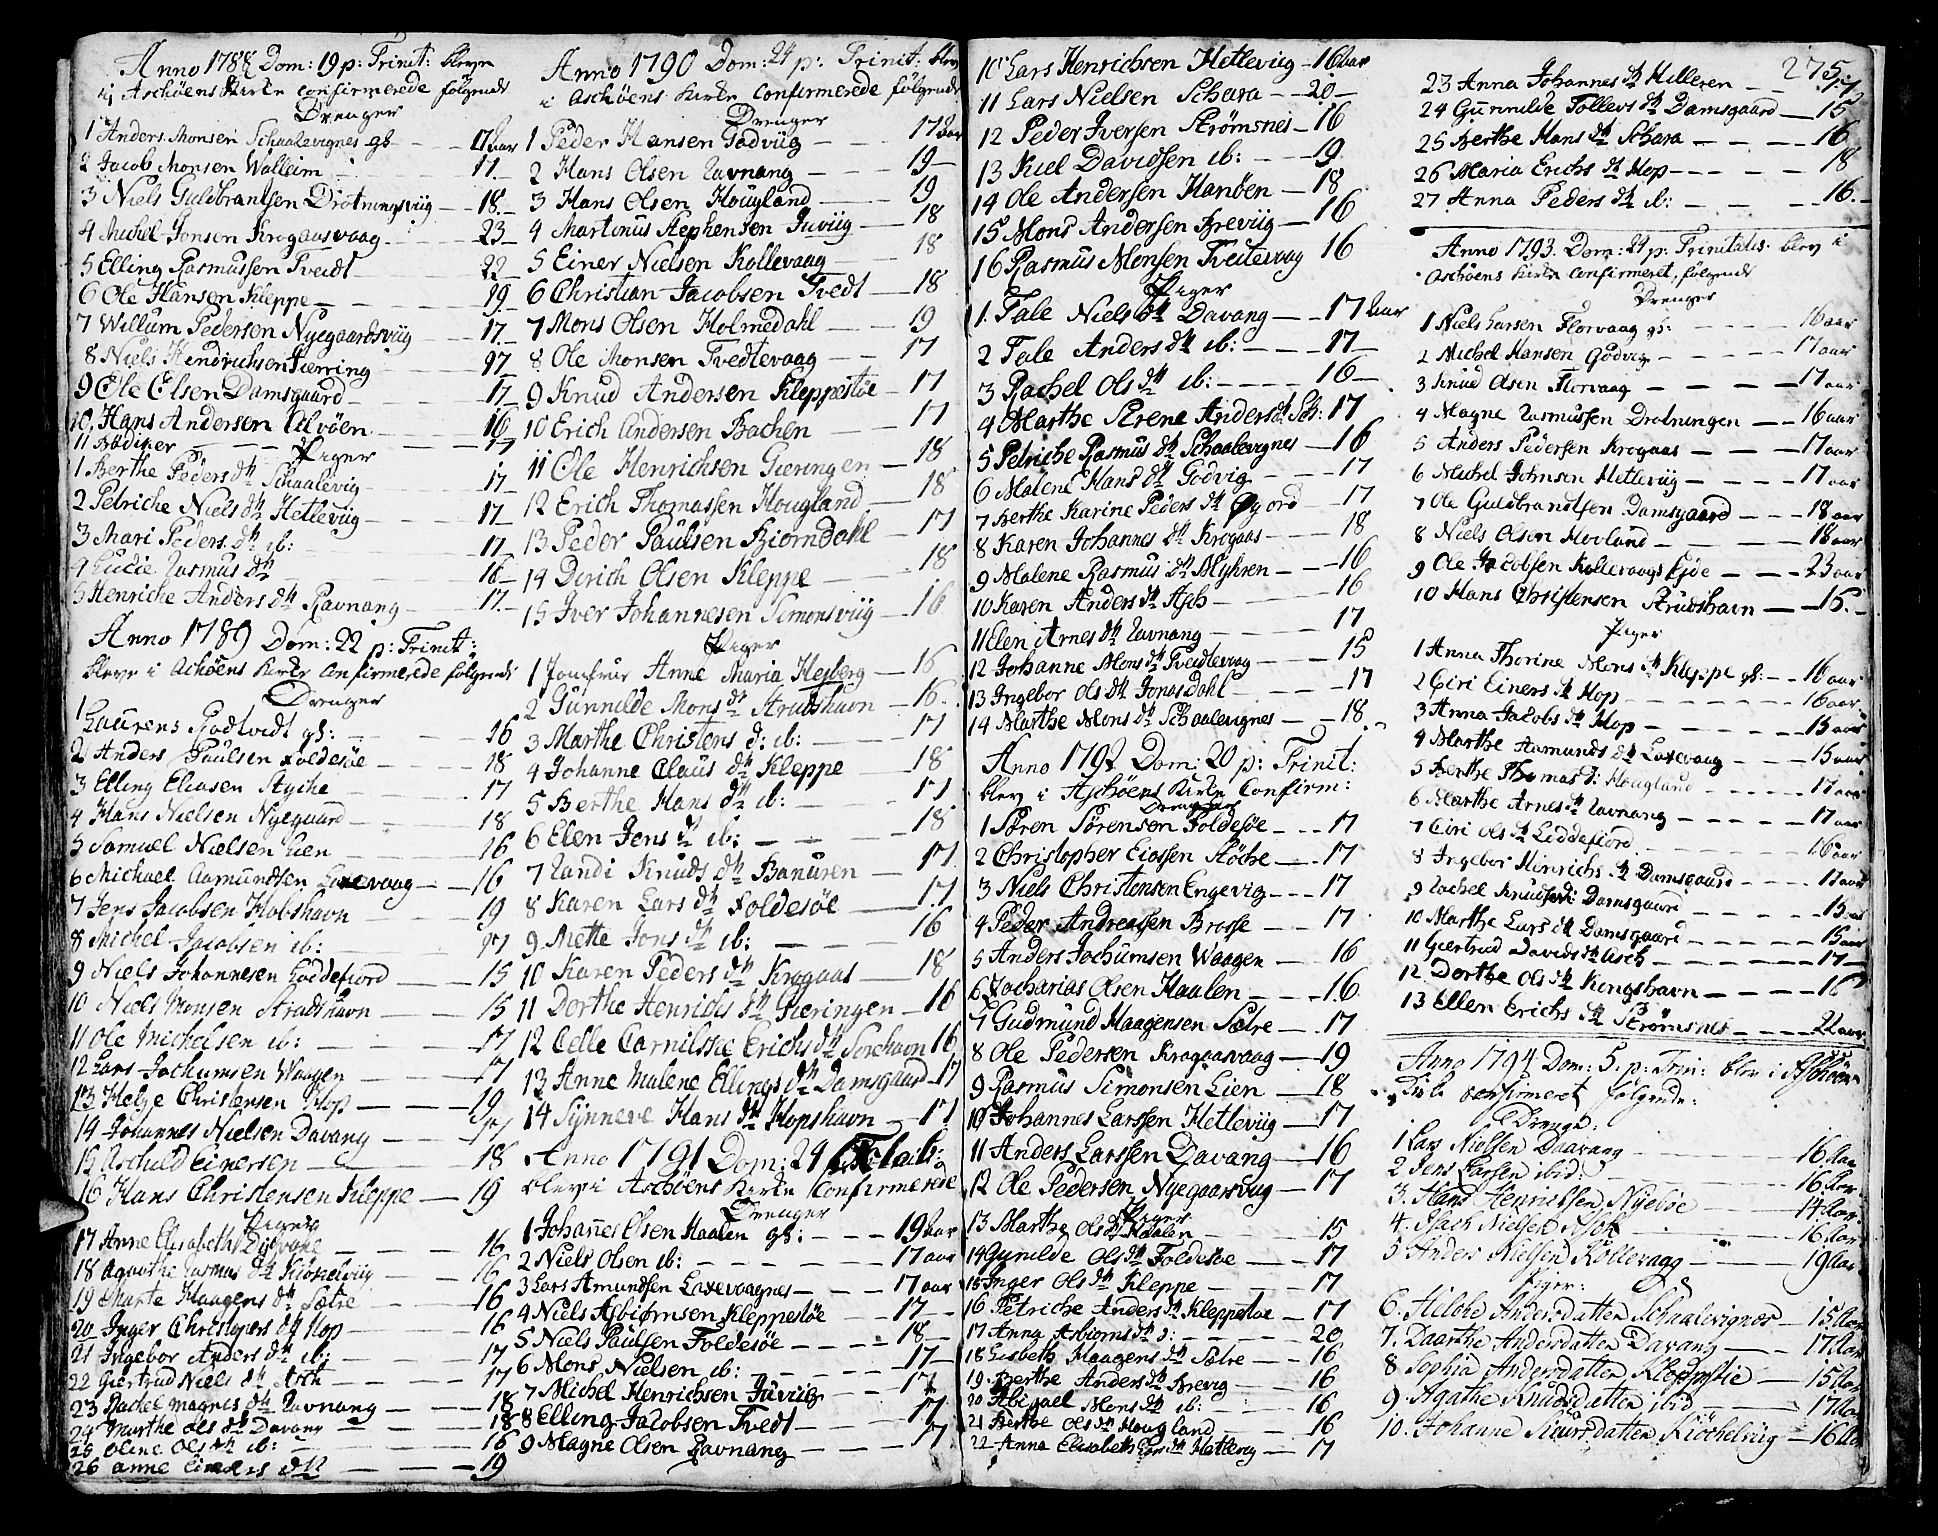 Anno 1788 Dom: 19 p: Trinit: bleve
i Aschöens Kirke confirmerede følgende
Drenger
1 Anders Monsen Schaalevignes gs — 17 aar
2 Jacob Monsen Walleim — 17
3 Niels Guldbrantsen Drotningsviig — 18
4 Michel Jonsen Krogaasvaag — 23
5 Elling Rasmussen Tveidt — 22
6 Ole Hansen Kleppe — 19
7 Willum Pedersen Nyegaardsviig — 17
8 Niels Hendrichsen — 17
9 Ole Olsen Damsgaard — 17
10 Hans Andersen Alvöen — 16
11 Bødiker — 17
Piger
1 Berthe Peders dtr Schaalevig — 17
2 Petriche Niels dtr Hetleviig — 17
3 Mari Peders dtr ib: — 17
4 Lucie Rasmus dtr — 16
5 Henriche Anders dtr Ravnang — 17
Anno 1789 Dom: 22 p: Trinit:
bleve i Aschöens Kirke Confirmerede følgende
Drenger
1 Laurens Rodtvidt gs: — 16
2 Anders Paulsen Foldesöe — 18
3 Elling Eliasen — 17
4 Hans Nielsen Nyegaard — 18
5 Samuel Nielsen Lien — 16
6 Michael Aamundsen Laxevaag — 16
7 Jens Jacobsen Kobshavn — 19
8 Michel Jacobsen ib: — 17
9 Niels Johannesen Loddefiord — 15
10 Niels Monsen Strudshavn — 15
11 Ole Michelsen ib: — 17
12 Lars Jochumsen Waagen — 17
13 Helje Christensen Hop — 19
14 Johannes Nielsen Davang — 17
15 Aschild Einersen — 18
16 Hans Christensen Kleppe — 19
Piger
17 Anne Elisabeth — 16
18 Agathe Rasmus dtr Kiøkelviig — 16
19 Marte Haagens dtr Sætre — 16
20 Inger Christophers dtr Hop — 16
21 Ingebor Anders dtr ib: — 17
22 Giertrud Niels dtr Asch — 17
23 Rachel Magnes dtr Ravnang — 18
24 Marthe Ols dtr Davang — 18
25 Oline Ols dtr ib: — 16
26 Anne Einers dtr — 19
Anno 1790 Dom: 24 p: Trinit: blev
i Aschöens Kirke Confirmerede følgende
Drenger
1 Peder Hansen Godviig — 17 aar
2 Hans Olsen Ravnang — 19
3 Hans Olsen Hougland — 19
4 Martinus Stephensen Juviig — 18
5 Einer Nielsen Kollevaag — 18
6 Christian Jacobsen Tvedt — 18
7 Mons Olsen Holmedahl — 19
8 Ole Monsen Tvedtevaag — 17
9 Knud Andersen Kleppestöe — 17
10 Erich Andersen Bachen — 17
11 Ole Henrichsen Gieringen — 18
12 Erich Thomassen Hougland — 18
13 Peder Paulsen Biorndahl — 17
14 Dirich Olsen Kleppe — 18
15 Iver Johannesen Simonsviig — 16
Piger
1 Jomfrue Anne Maria Heiberg — 16
2 Gunnilde Mons dtr Strudshavn — 16
3 Marthe Christens d: ib: — 17
4 Johanne Claus dtr Kleppe — 18
5 Berthe Hans dtr ib: — 17
6 Elen Jens dtr ib: — 18
7 Randi Knuds dtr Banuren — 17
8 Karen Lars dtr Foldesöe — 17
9 Mette Jons dtr ib: — 16
10 Karen Peders dtr Krogaas — 18
11 Dorthe Henrichs dtr Gieringen — 16
12 Celle Carnilske Erichs dtr Sorehavn 16
13 Anne Malene Ellings dtr Damsgaard — 17
14 Synneve Hans dtr Kopshavn — 17
Anno 1791 Dom: 24
blev i Aschöens Kirke Confirmerede
Drenger
1 Johannes Olsen Haalen gs: — 19 aar
2 Niels Olsen ib: — 17 aar
3 Lars Amundsen Laxevaagnes — 17 aar
4 Niels Asbiørnsen Kleppestöe — 17
5 Niels Paulsen Foldesöe — 18
6 Mons Nielsen ib: — 17
7 Michel Henrichsen Juviig — 17
8 Elling Jacobsen Tvedt — 17
9 Magne Olsen Ravnang — 17
10 Lars Henrichsen Hetleviig — 16 aar
11 Lars Nielsen Schara — 20
12 Peder Iversen Strømsnes — 16
13 Kiel Davidsen ib: — 19
14 Ole Andersen Hanöen — 18
15 Mons Andersen Breviig — 16
16 Rasmus Monsen Tveitevaag 16
Piger
1. Tale Niels dtr Davang — 17 aar
2 Tale Anders dtr ib: — 17
3 Rachel Ols dtr ib: — 16
4 Marthe Strene Anders dtr Sch: 17
5 Petriche Rasmus dtr Schaalevignes — 16
6 Malene Hans dtr Godvig — 17
7 Berthe Karine Peders dtr — 17
8 Karen Johannes dtr Krogaas — 18
9 Malene Rasmus dtr Myhren — 16
10 Karen Anders dtr Asch — 16
11 Elen Arnes dtr Ravnang — 17
12 Johanne Mons dtr Tvedtevaag — 15
13 Ingebor Ols dtr Jonasdahl — 17
14 Marthe Mons dtr Schaalevignes — 18
Anno 1792 Dom: 20 p: Trinit:
blev i Aschöens Kirke Confirm:
Drenger
1 Søren Sörensen Foldesöe — 17
2 Christopher — 17
3 Niels Christensen Engevig — 17
4 Peder Andreasen Brosse — 17
5 Anders Jochumsen Waagen — 16
6 Zacharias Olsen Haalen — 16
7 Gudmund Haagensen Sætre — 17
8 Ole Pedersen Krogaasvaag — 19
9 Rasmus Simonsen Lien — 18
10 Johannes Larssen Hetleviig — 17
11 Anders Larssen Davang — 16
12 Ole Pedersen Nyegaarsvug — 17
Piger
13 Marthe Ols dtr Haalen — 15
14 Gunilde Ols dtr Foldesöe — 17
15 Inger Ols dtr Kleppe — 17
16 Petriche Anders dtr Kleppestöe — 17
17 Anna Asbiorns dtr — 20
18 Lisbeth Haagens dtr Sætre — 16
19 Berthe Anders dtr Brevig — 16
20 Abigael Mons dtr ib: — 16
21 Berthe Ols dtr Hougland — 16
22 Anna Elisabeth Lars dtr Hetlevig — 17
275.
23 Anna Johannes dtr Hilleren — 17
24 Gunnilde Tollevs dtr Damsgaard — 15
25 Berthe Hans dtr Schara — 16
26 Maria Erichs dtr Hop — 18
27 Anna Peders dtr ib: — 16
Anno 1793. Dom: 24 p: Trinitatis: blev i
Aschöens Kirke Confirmeret, følgende
Drenger
1 Niels Larsen Florvaag gs: — 16 aar
2 Michel Hansen Godvig — 17 aar
3 Knud Olsen Florvaag — 17 aar
4 Magne Rasmussen Drotningen — 16 aar
5 Anders Pedersen Krogaas — 17 aar
6 Michel Johnsen Hetleviig — 17 aar
7 Ole Guldbrandtsen Damsgaard — 18 aar
8 Niels Olsen Hovland — 18 aar
9 Ole Jacobsen Kollevaags — 23 aar
10 Hans Christensen Strudshavn — 15
Piger
1 Anna Thorine Mons dtr Kleppe gs: — 16 aar
2 Ciri Einers dtr Hop — 16 aar
3 Anna Jacobs dtr Hop — 15 aar
4 Marthe Aamunds dtr Laxevaag — 15 aar
5 Berthe Thomas d: Hougland — 17 aar
6 Marthe Arnes dtr Ravnang — 17 aar
7 Ciri Ols dtr Loddefiord — 16 aar
8 Ingebor Hinrichs dtr Damsgaard — 17 aar
9 Rachel Knuds d: Damsgaard — 15 aar
10 Marthe Lars dtr Damsgaard — 15 aar
11 Giertrud Davids dtr Asch — 17
12 Dorthe Ols dtr Kongshavn — 16
13 Ellen Erichs dtr Strömsnes — 22 aar
Anno 1794 Dom: 5. p: Trin: blev i Aschöen
Kirke confirmeret følgende:
Drenge:
1 Lars Nielsen Daavang — 16 Aar
2 Jens Larsen ibid: — 16 Aar
3. Hans Henrichsen Nyeböe — 17 Aar
4. Isach Nielsen Ask — 16 Aar
5 Anders Nielsen Kollevaag — 19 Aar
Piger:
6. Andersdatter Schaalevignes — 15 Aar
7. Daarthe Andersdatter Davang — 17 Aar
8 Sophia Andersdatter Kleppestøe — 15 Aar
9. Agathe Knudsdatter ibid — 17 Aar
10. Johanne Siursdatter Kiöchelviig — 16 Aar